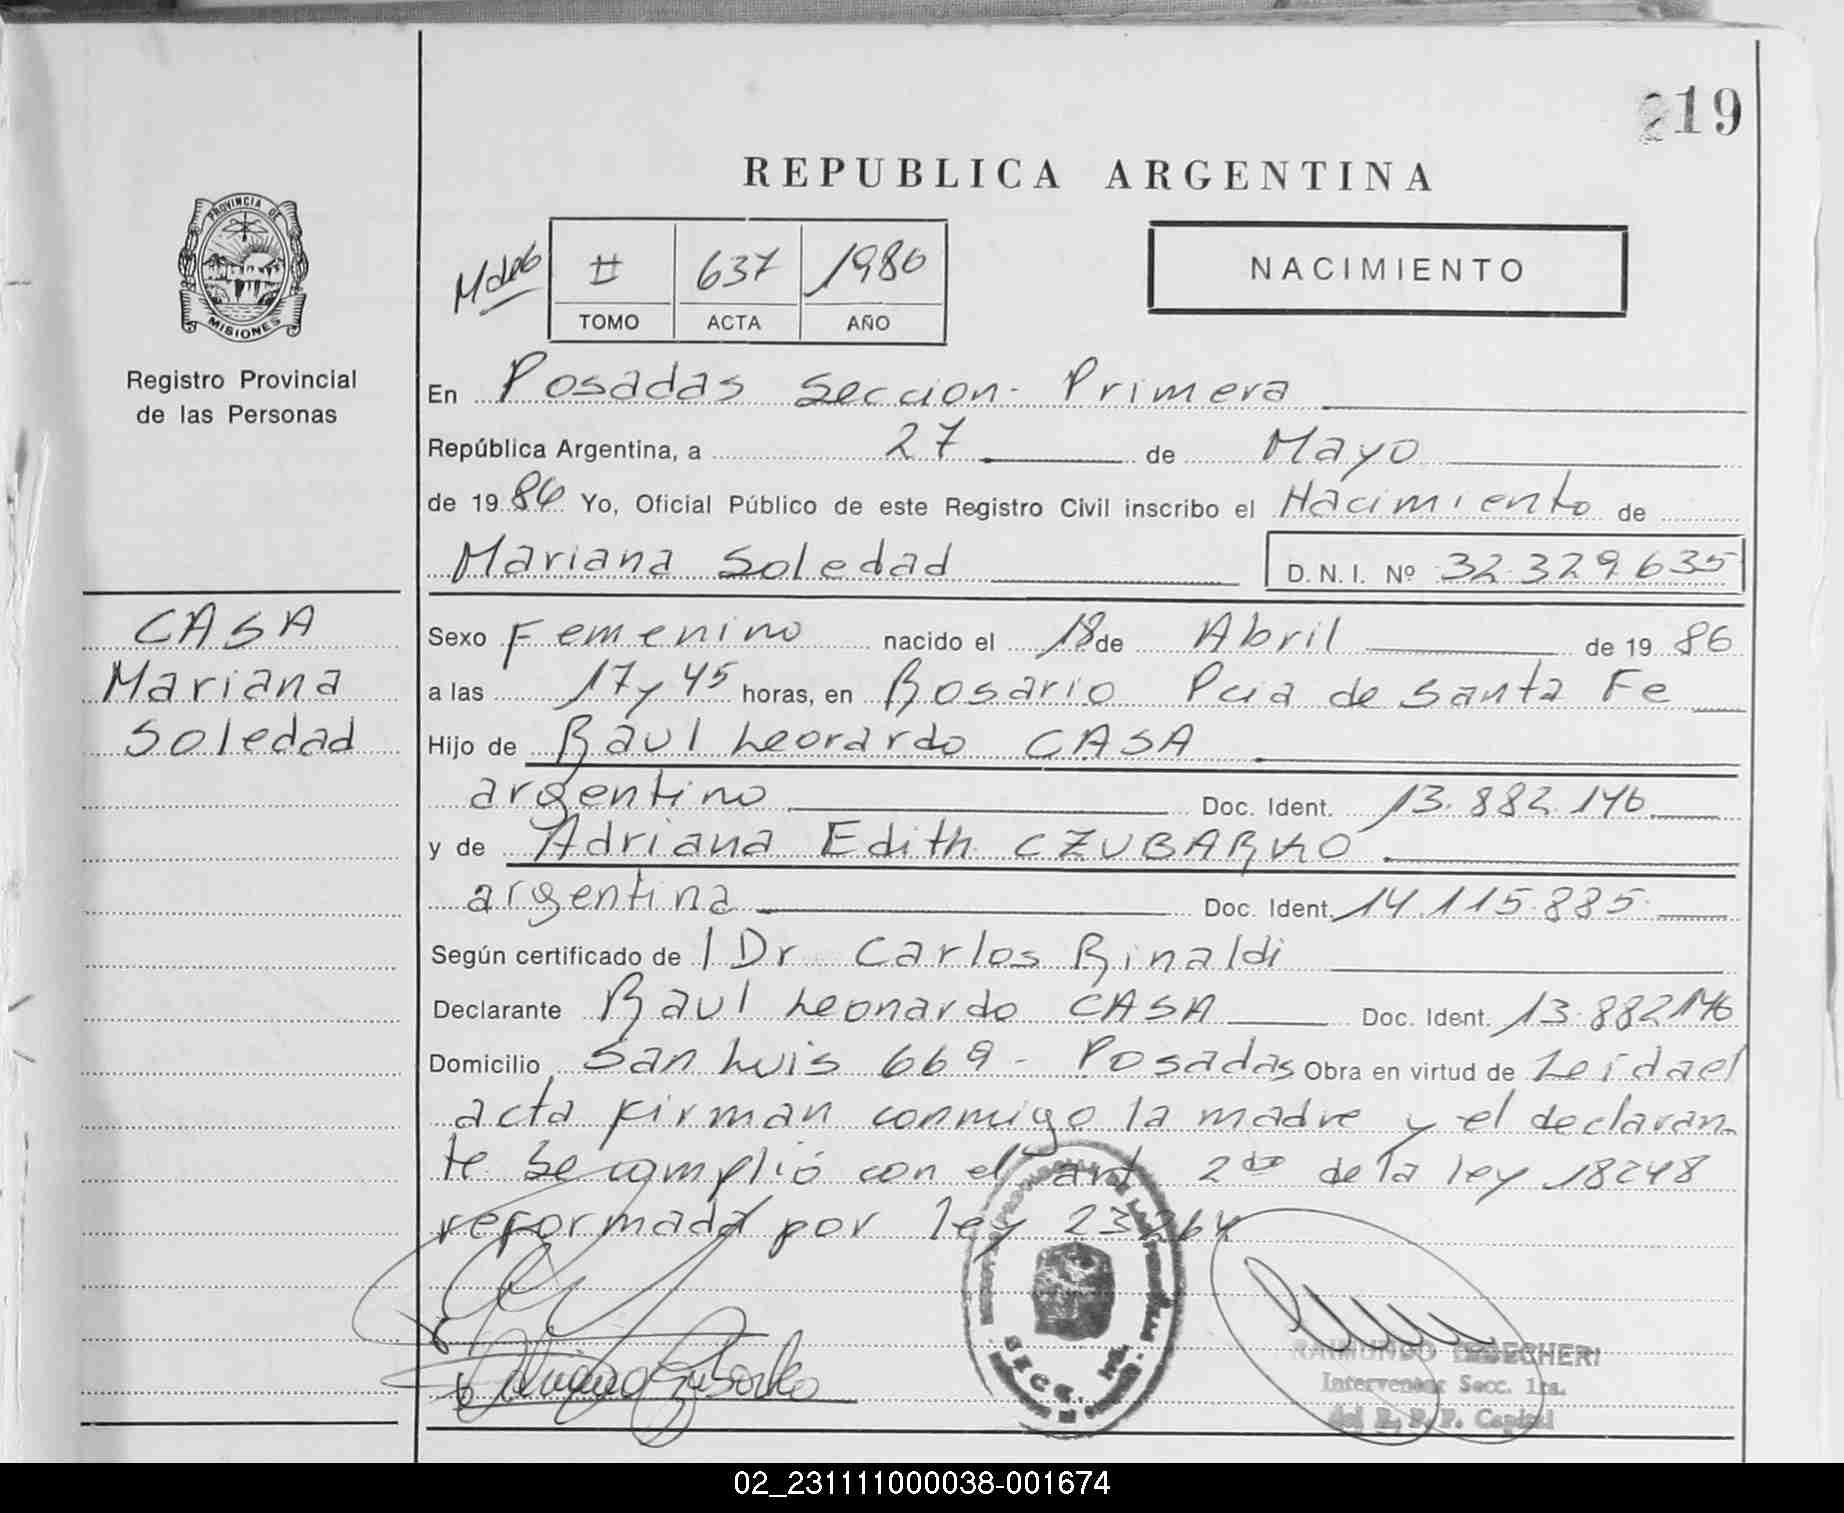 219
REPUBLICA ARGENTINA
PROVINCIA DE
MISIONES
Registro Provincial
de las Personas
II 637 1986
TOMO ACTA AÑO
NACIMIENTO
En Posadas Seccion - Primera
República Argentina, a 27 de Mayo
de 1986 Yo, Oficial Público de este Registro Civil inscribo el Nacimiento de
Mariana Soledad D.N.I. Nº 32.329.635
CASA
Mariana
Soledad
Sexo Femenino nacido el 18 de Abril de 1986
a las 17 y 45 horas, en Rosario Pcia de Santa Fe
Hijo de Raul Leorardo CASA
argentino Doc. Ident. 13.882.146
y de Adriana Edith CZUBARKO
argentina Doc. Ident. 14.115.885
Según certificado de Dr Carlos Rinaldi
Declarante Raul Leonardo CASA Doc. Ident. 13.882146
Domicilio San Luis 669 - Posadas Obra en virtud de Leida el
acta firman conmigo la madre y el declaran-
te Se complió con el art 2do de la ley 18248
reformada por ley 23264
RAIMUNDO
Interventor Secc. 1ra.
del R. P. P. Capital
02_231111000038-001674